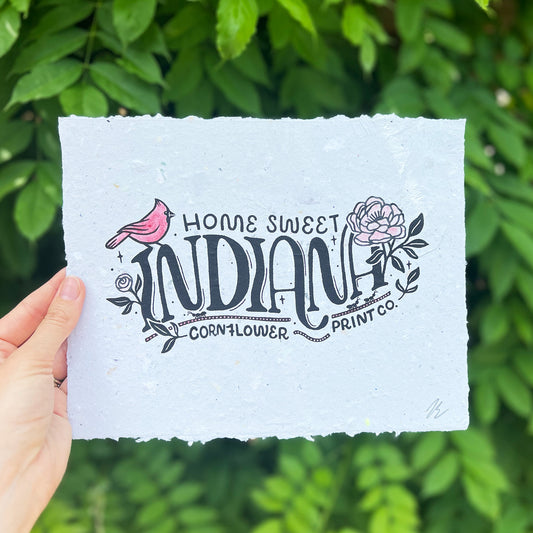 HOME SWEET
INDIANA
CORNFLOWER PRINT CO.